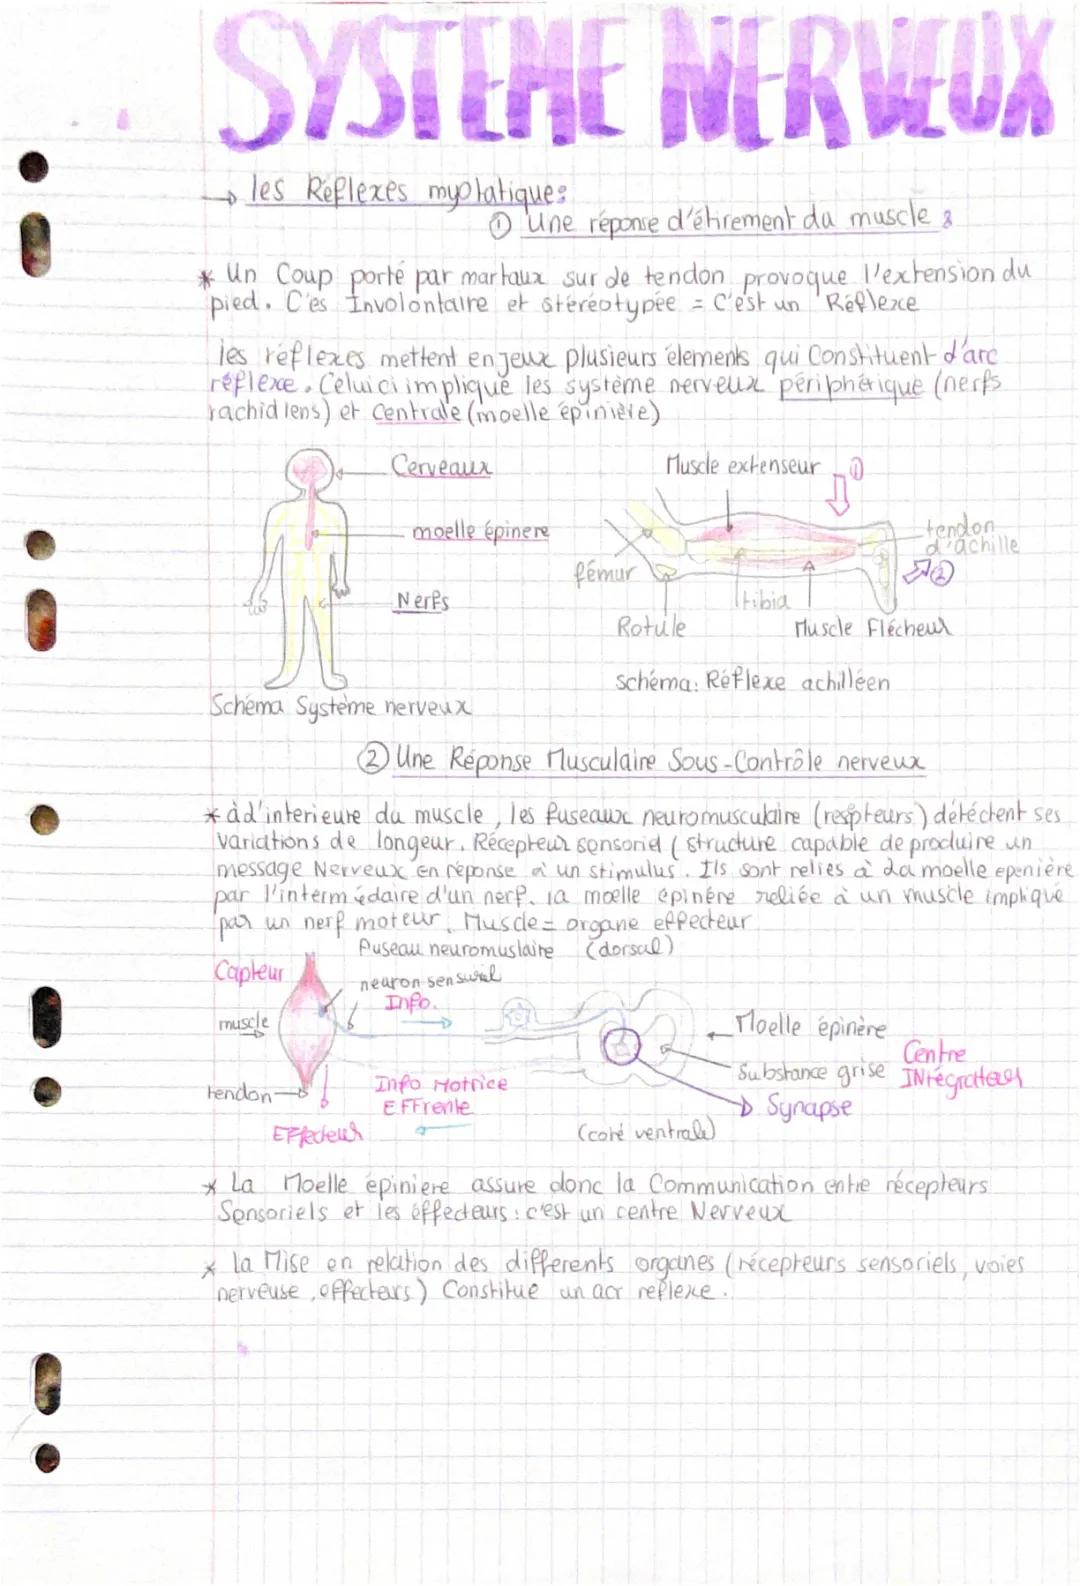 SYSTEME NERVEUX
→ les Réflexes myotatique:
① Une réponse d'étirement du muscle :
* Un Coup porté par martaux sur de tendon provoque l'extension du
pied. C'es Involontaire et stéréotypée = C'est un Réflexe
les réflexes mettent en jeux plusieurs élements qui Constituent d'arc
réflexe. Celui ci implique les système nerveux périphérique (nerfs
rachidiens) et Centrale (moelle épinière)
Cerveaux
moelle épinere
Nerfs
Schéma Système nerveux
Muscle extenseur
①
tendon
d'achille
②
fémur
tibia
Rotule
Muscle Flécheur
schéma: Réflexe achilléen
② Une Réponse Musculaire Sous-Contrôle nerveux
* àd'interieure du muscle, les fuseaux neuromusculaire (respteurs) détéctent ses
variations de longeur. Récepteur sensoriel (structure capable de produire un
message Nerveux en réponse à un stimulus. Ils sont relies à la moelle epenière
par l'intermédaire d'un nerf. la moelle épinére reliée à un muscle impliqué
par un nerf moteur. Muscle = organe effecteur
Fuseau neuromuslaire (dorsal)
Capteur
neuron sensuriel
Info.
muscle
Moelle épinère
Centre
INtégrateur
Substance grise
tendon
Info Motrice
EFFrente
Synapse
Effecteur
(coté ventrale)
* La Moelle épiniere assure donc la Communication entre récepteurs
Sensoriels et les éffecteurs : c'est un centre Nerveux
* la Mise en relation des differents organes (récepteurs sensoriels, voies
nerveuse, effecteurs) Constitue un acr reflexe.